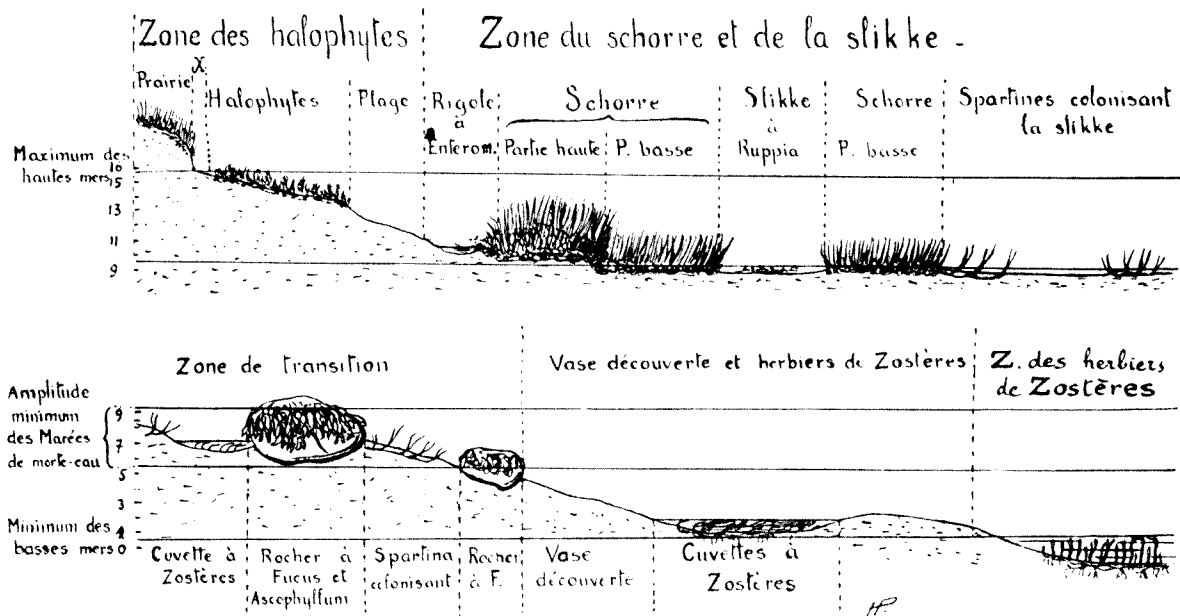 Zone des halophytes
Zone du schorre et de la slikke -
X
Prairie
Halophytes
Plage
Rigole
à
Enterom.
Schorre
Partie haute
P. basse
Slikke
à
Ruppia
Schorre
P. basse
Spartines colonisant
la slikke
Maximum des
hautes mers
16
15
13
11
9
Zone de transition
Vase découverte et herbiers de Zostères
Z. des herbiers
de Zostères
Amplitude
minimum
des Marées
de morte-eau
9
7
5
3
1
Minimum des
basses mers 0
Cuvette à
Zostères
Rocher à
Fucus et
Ascophyllum
Spartina
colonisant
Rocher
à F.
Vase
découverte
Cuvettes à
Zostères
HP.